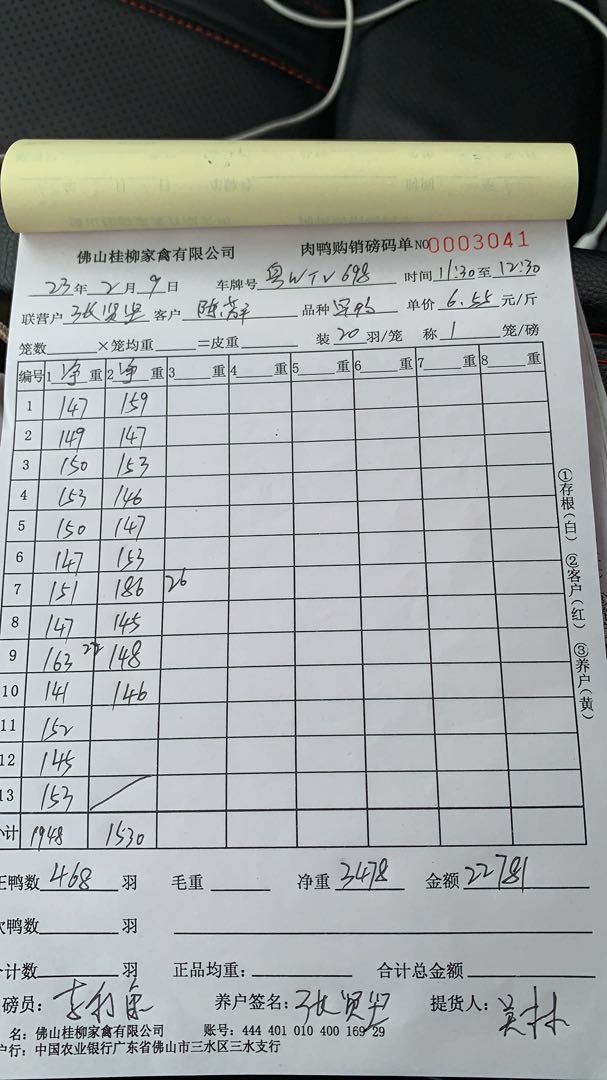 佛山桂柳家禽有限公司 肉鸭购销磅码单 NO 0003041
23年 2月 9日 车牌号 粤WTV698 时间 11:30至 12:30
联营户 张贤 客户 陈 品种 单价 6.55 元/斤
笼数 ×笼均重 =皮重 装 20 羽/笼 称 1 笼/磅
编号 1 净 重 2 净 重 3 重 4 重 5 重 6 重 7 重 8 重
1 147 159
2 149 147
3 150 153
4 153 146
5 150 147
6 147 153
7 151 186 26
8 147 145
9 163 22 148
10 141 146
11 152
12 145
13 153
小计 1948 1530
正鸭数 468 羽 毛重 净重 3478 金额 22781
次鸭数 羽
合计数 羽 正品均重: 合计总金额
磅员: 李 养户签名: 张贤 提货人: 吴林
名: 佛山桂柳家禽有限公司 账号: 444 401 010 400 169 29
户行: 中国农业银行广东省佛山市三水区三水支行
①存根(白) ②客户(红) ③养户(黄)